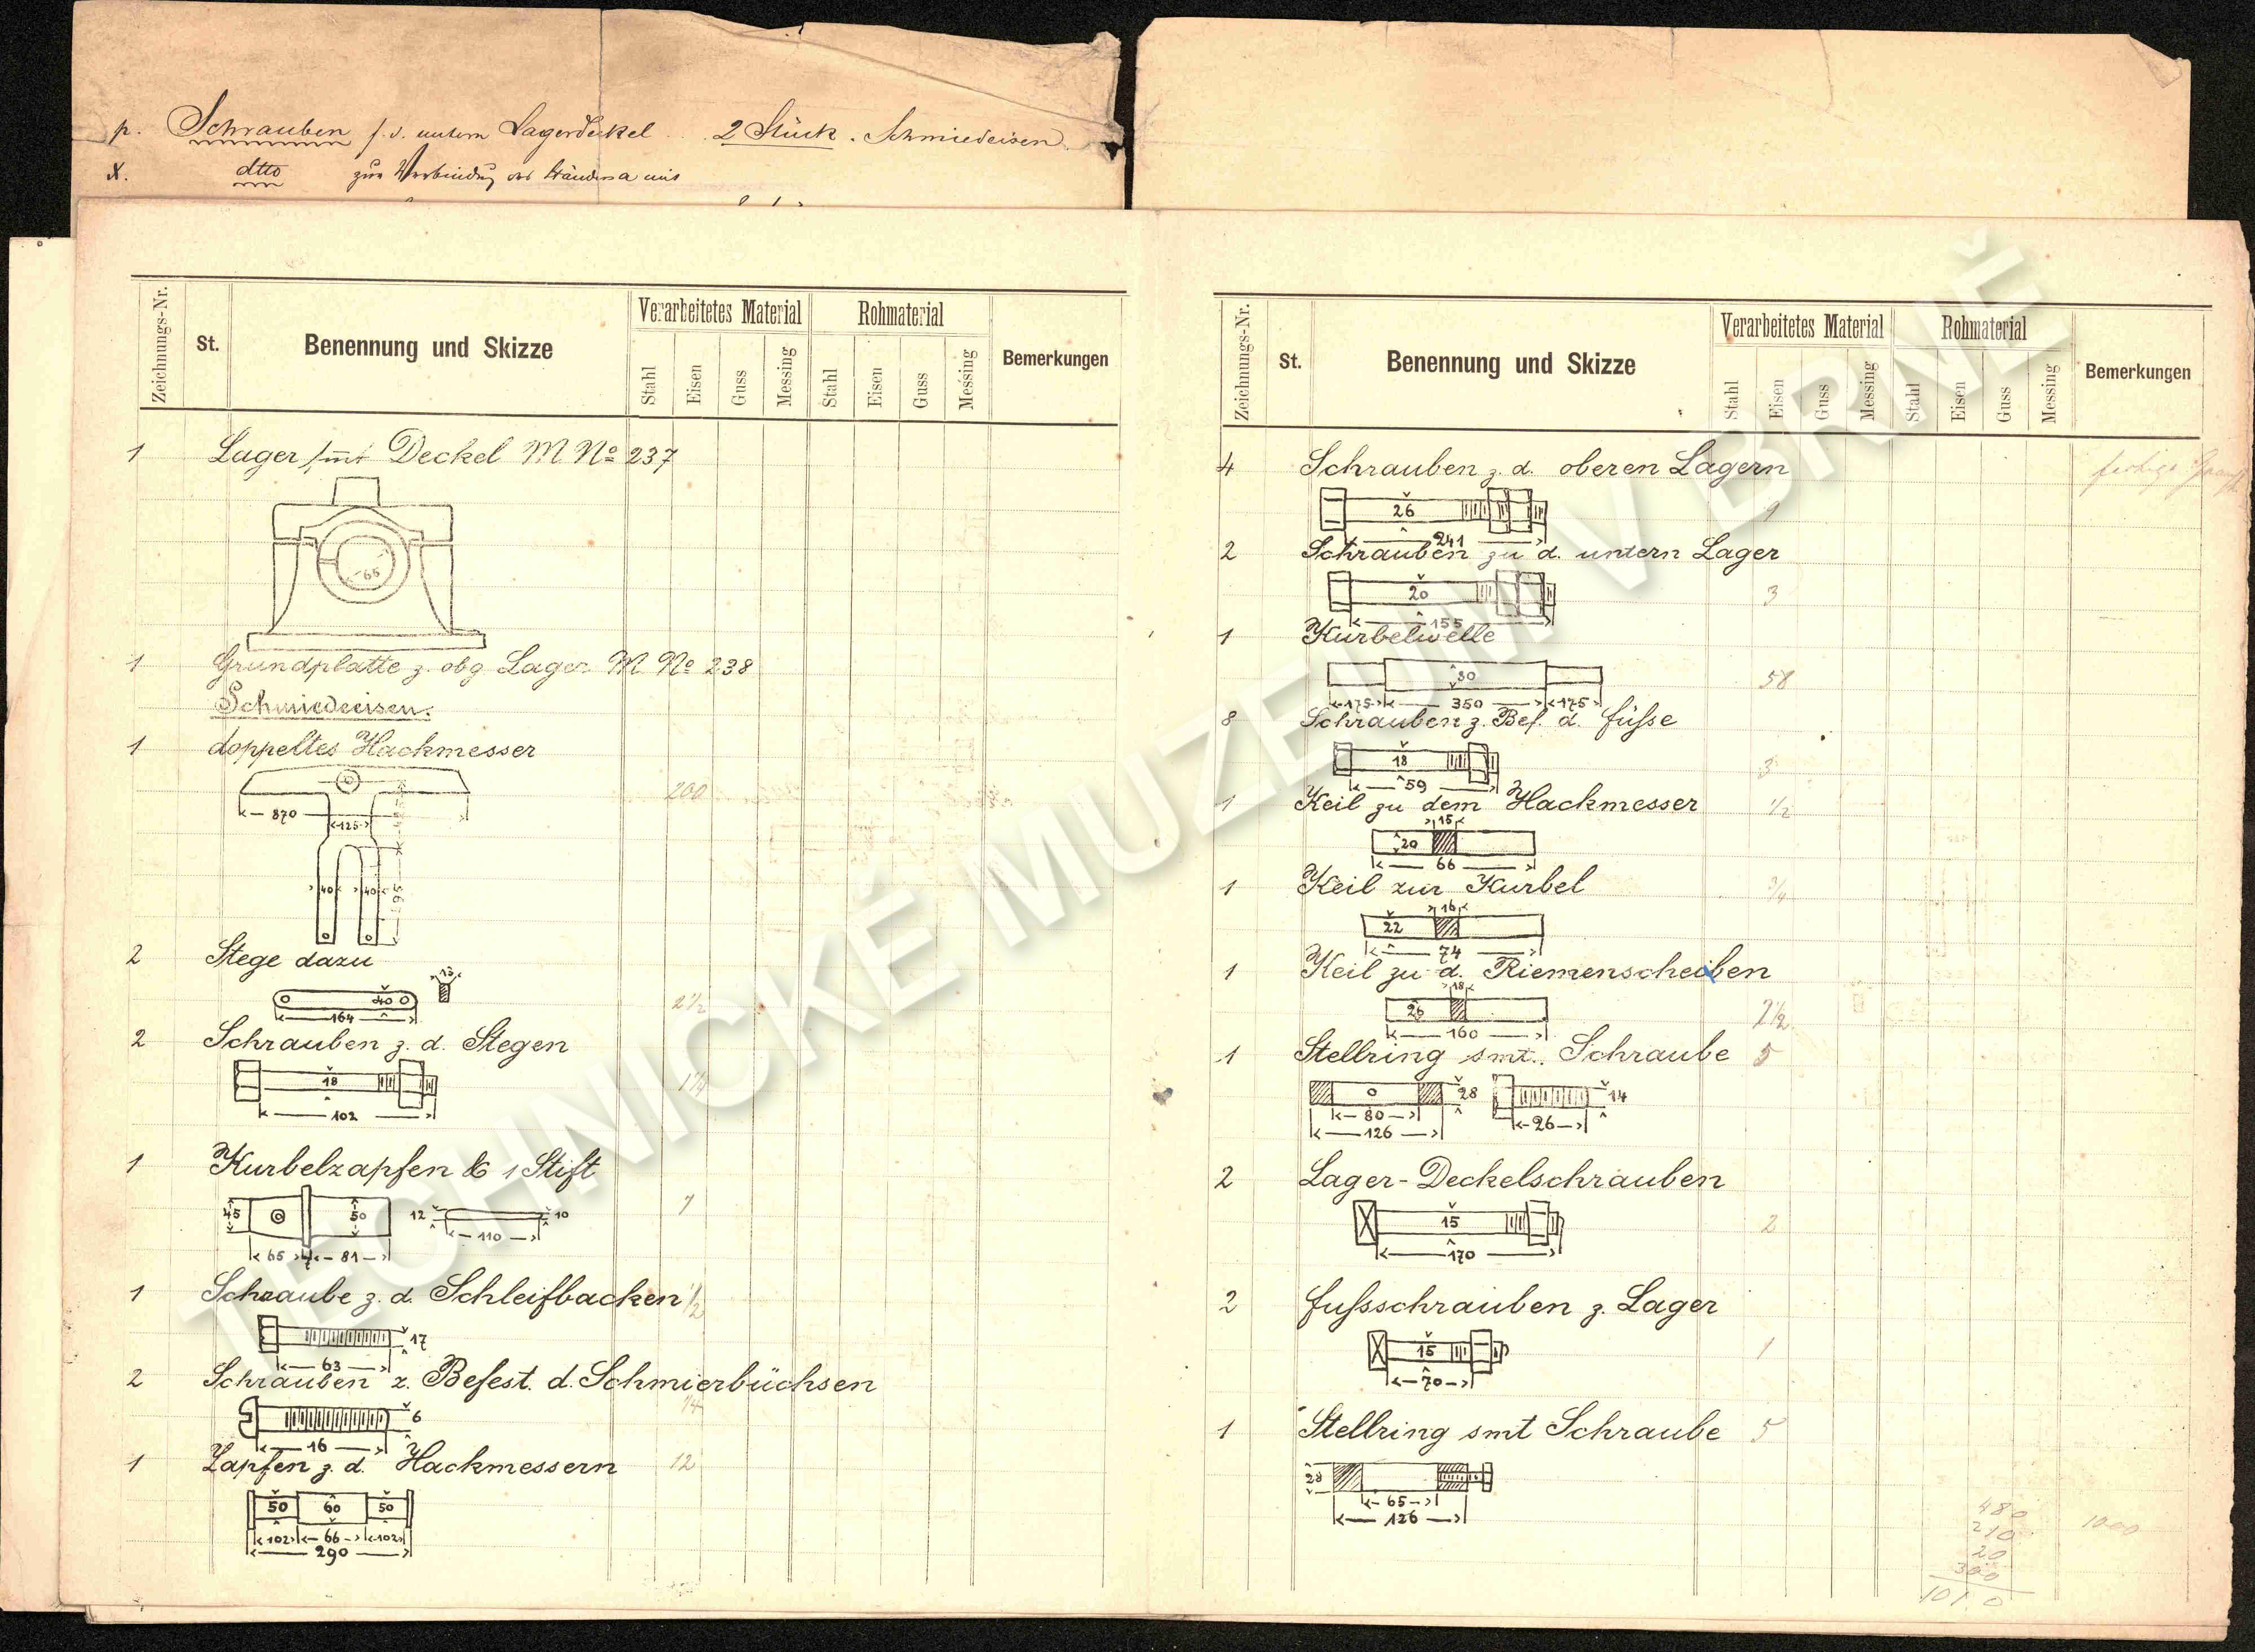 p. Schrauben f. d. untern Lagerdeckel .. 2 Stück. Schmiedeisen
x. dtto zur Verbindung des Ständers a mit
Zeichnungs-Nr.
St.
Benennung und Skizze
Verarbeitetes Material
Rohmaterial
Bemerkungen
Stahl Eisen Guss Messing Stahl Eisen Guss Messing
1 Lager smt Deckel M. No 237
66
1 Grundplatte z. obg Lager M No 238
Schmiedeeisen.
1 doppeltes Hackmesser
200
870
125
40 40
195
2 Stege dazu
13
40
2 1/2
164
2 Schrauben z. d. Stegen
18
102
1 Kurbelzapfen & 1 Stift
45 50 12 10 7
110
65 7 81
1 Schraube z. d. Schleifbacken 1/2
17
63
2 Schrauben z. Befest. d. Schmierbüchsen
1/4
6
16
1 Zapfen z. d. Hackmessern 12
50 60 50
102 66 102
290
Zeichnungs-Nr.
St.
Benennung und Skizze
Verarbeitetes Material
Rohmaterial
Bemerkungen
Stahl Eisen Guss Messing Stahl Eisen Guss Messing
4 Schrauben z. d. oberen Lagern
26 9
241
2 Schrauben zu d. untern Lager
20 3
155
1 Kurbelwelle
80 58
175 350 175
8 Schrauben z. Bef. d. füsse
18 3
59
1 Keil zu dem Hackmesser 1/2
15
20
66
1 Keil zur Kurbel 3/4
16
22
74
1 Keil zu d. Riemenscheiben
18
26 2 1/2
160
1 Stellring smt. Schraube 5
28 14
80 26
126
2 Lager-Deckelschrauben
15 2
170
2 fussschrauben z. Lager
15 1
70
1 Stellring smt Schraube 5
28
65
126
480
210
20
300
1010
1000
TECHNICKÉ MUZEUM V BRNĚ